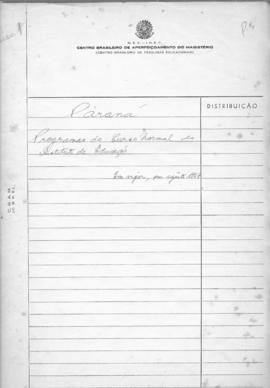 M.E.C. - I.N.E.P.
CENTRO BRASILEIRO DE APERFEIÇOAMENTO DO MAGISTÉRIO
(CENTRO BRASILEIRO DE PESQUISAS EDUCACIONAIS)
DISTRIBUIÇÃO
Paraná
Programas do Curso Normal do
Instituto de Educação
Em vigor, em agôsto